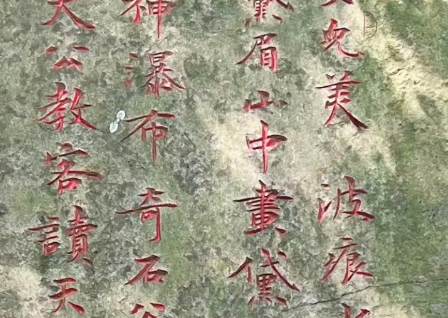 美波痕
黛眉山中畫黛
神瀑布奇石
天公教客讀天